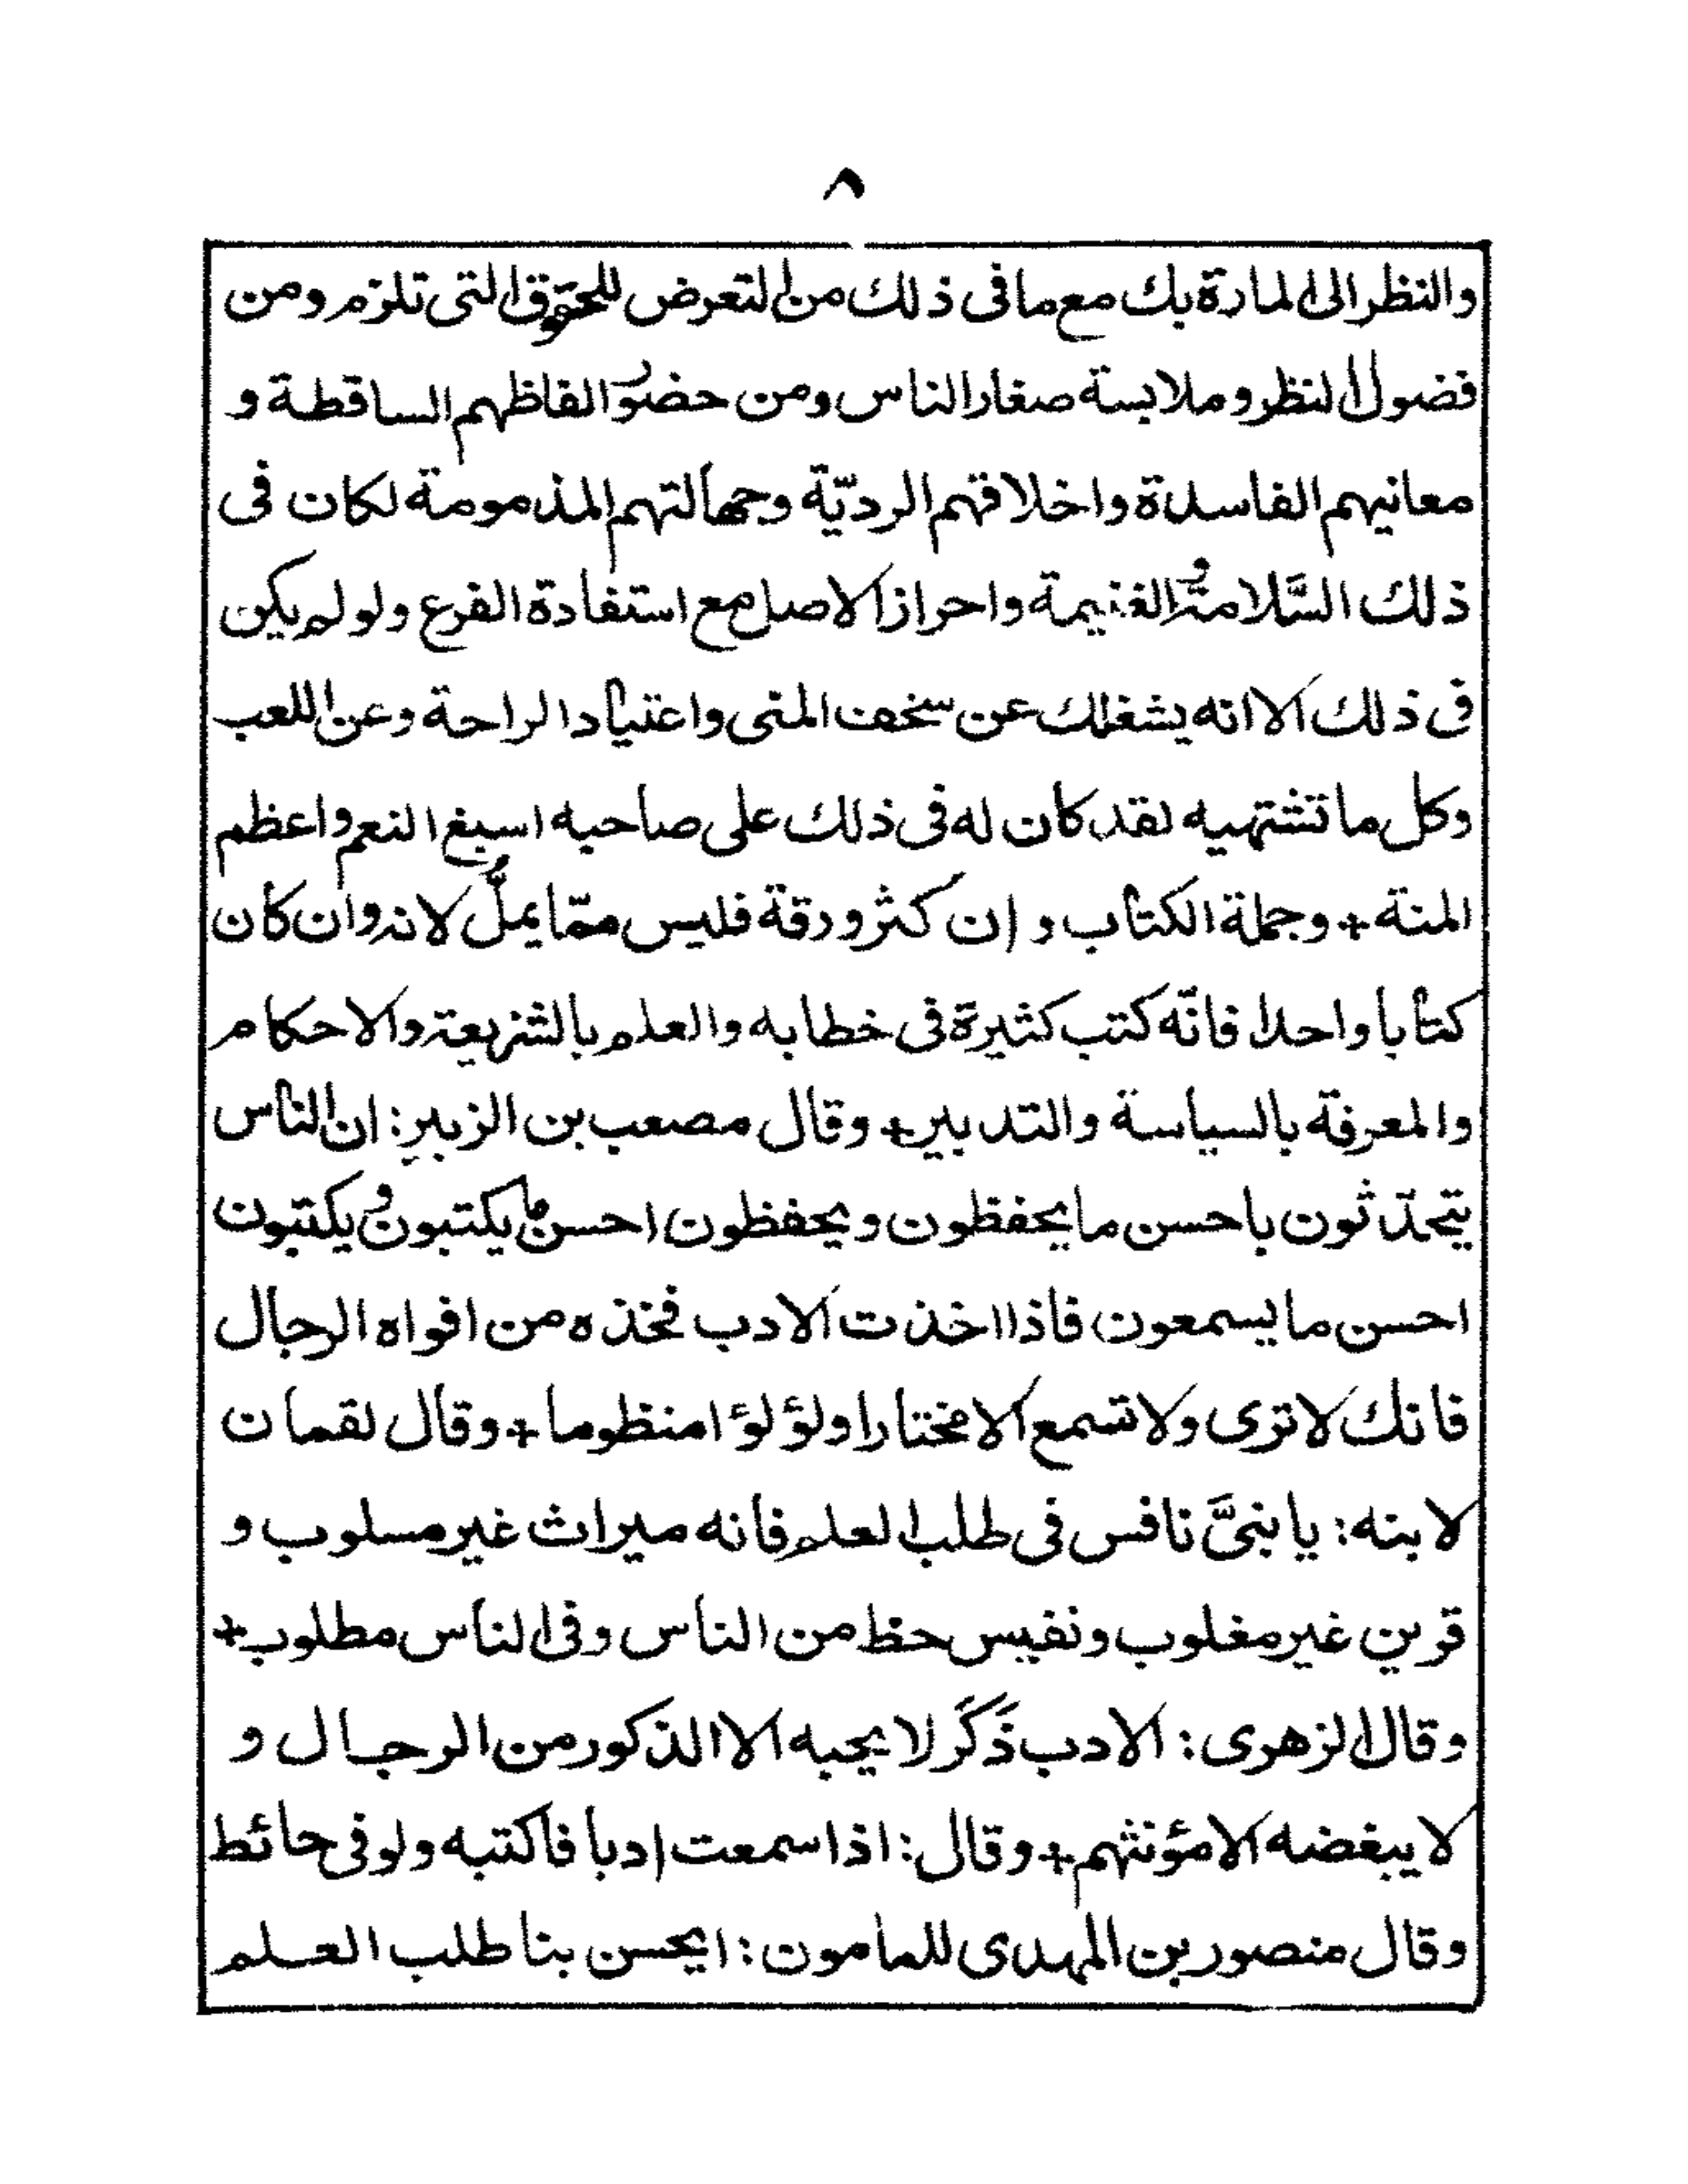 ٨
والنظر الى المارة بك مع ما فى ذلك من التعرض للحقوق التى تلزم ومن
فضول النظر وملابسة صغار الناس ومن حضور الفاظهم الساقطة و
معانيهم الفاسدة واخلاقهم الرديّة وجهالتهم المذمومة لكان فى
ذلك السَّلامة والغنيمة واحراز الاصل مع استفادة الفرع ولو لم يكن
فى ذلك الا انه يشغلك عن سخف المنى واعتياد الراحة وعن اللعب
وكل ما تشتهيه لقد كان له فى ذلك على صاحبه اسبغ النعم واعظم
المنة + وجملة الكتاب وإن كثر ورقة فليس ممّا يملُّ لانه وان كان
كتابا واحدا فانّه كتب كثيرة فى خطابه والعلم بالشريعة والاحكام
والمعرفة بالسياسة والتدبير + وقال مصعب بن الزبير: ان الناس
يتحدّثون باحسن ما يحفظون ويحفظون احسن ما يكتبون ويكتبون
احسن ما يسمعون فاذا اخذت الادب فخذه من افواه الرجال
فانك لا ترى ولا تسمع الا مختارا ولؤلؤا منظوما + وقال لقمان
لابنه: يا بنىَّ نافس فى طلب العلم فانه ميراث غير مسلوب و
قرين غير مغلوب ونفيس حظ من الناس وفى الناس مطلوب +
وقال الزهرى: الادب ذَكَر لا يحبه الا الذكور من الرجال و
لا يبغضه الا مؤنثهم + وقال: اذا سمعت ادبا فاكتبه ولو فى حائط
وقال منصور بن المهدى للمامون: ايحسن بنا طلب العلم